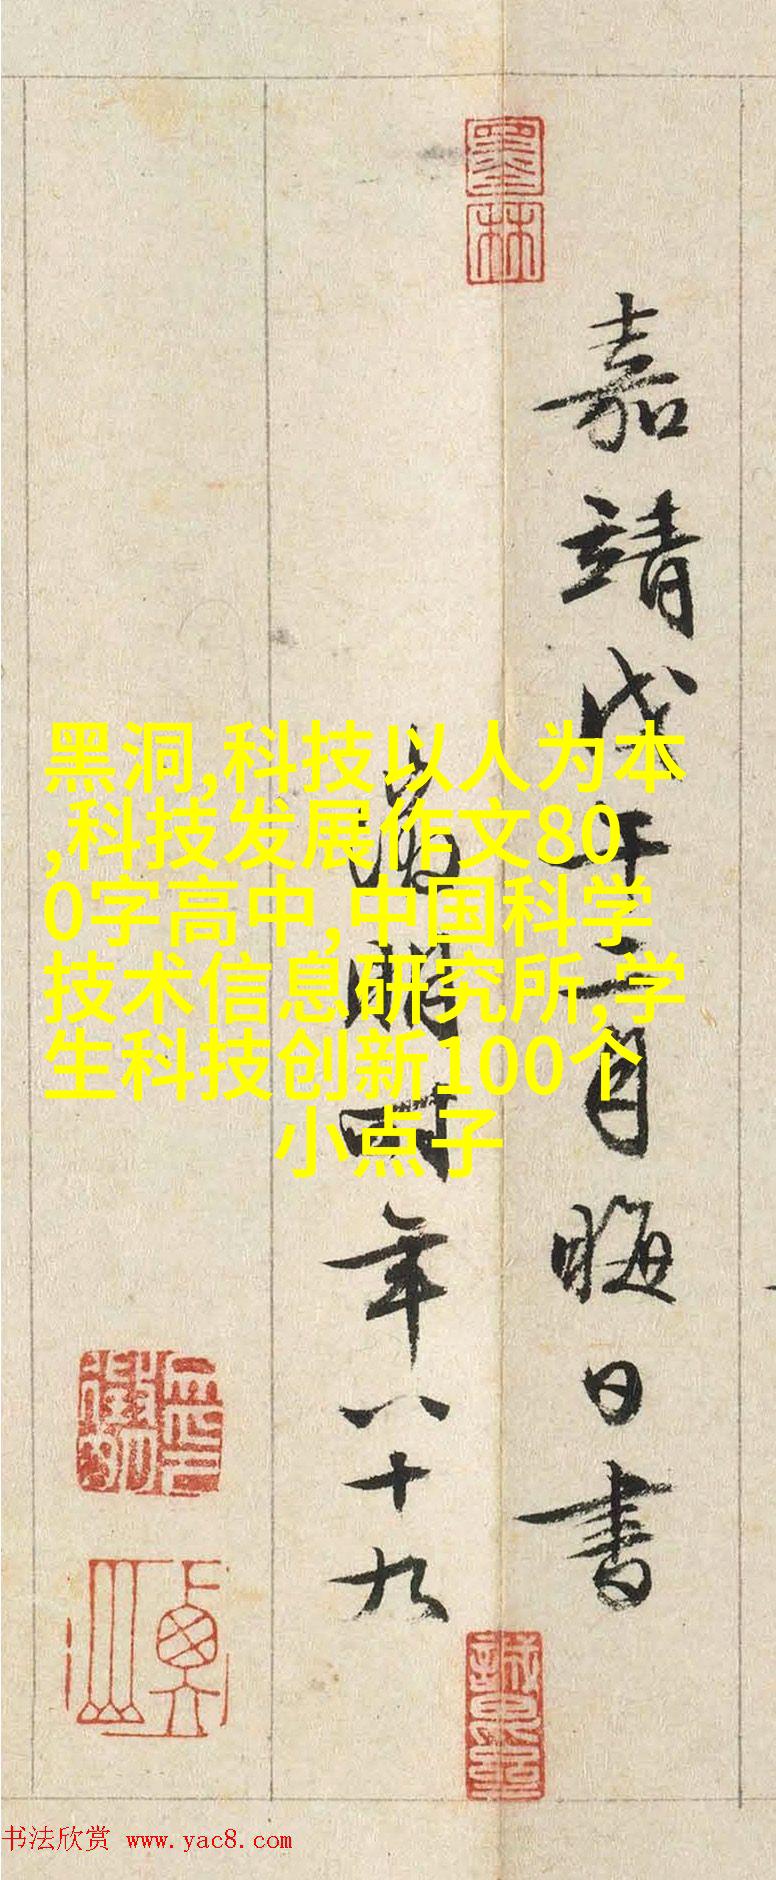 墨林
嘉靖戊午二月晦日書
徵明時年八十九
黑洞,科技以人为本
,科技发展作文80
0字高中,中国科学
技术信息研究所,学
生科技创新100个
小点子
书法欣赏 www.yac8.com